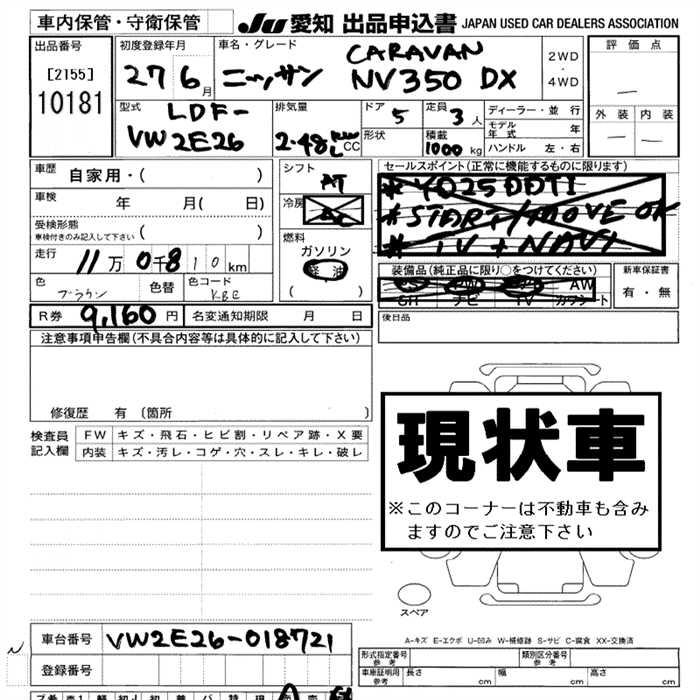 車内保管・守衛保管
JU 愛知 出品申込書 JAPAN USED CAR DEALERS ASSOCIATION
出品番号
[2155]
10181
初度登録年月
27 6月
車名・グレード
CARAVAN
ニッサン NV350 DX
2WD
・
4WD
評価点
―
外装 内装
― ―
型式
LDF-
VW2E26
排気量
2.48 L CC
ドア
5
形状
定員
3人
積載
1000 kg
ディーラー・並行
モデル
年式 年
ハンドル 左・右
車歴
自家用・( )
車検
年 月( 日)
受検形態
車検付きのみ記入して下さい ( )
走行
11万0千810km
色
ブラウン
色替
色コード
KBE
シフト
AT
冷房
AC
燃料
ガソリン
軽油
( )
セールスポイント(正常に機能するものに限ります)
* YD25DDTI
* START/MOVE OK
* TV + NAVI
装備品(純正品に限り○をつけてください)
PS PW AW
SH ナビ TV カワシート
新車保証書
有・無
R券 9,160円
名変通知期限 月 日
後日品
注意事項申告欄(不具合内容等は具体的に記入して下さい)
修復歴 有 (箇所 )
検査員
記入欄
FW キズ・飛石・ヒビ割・リペア跡・X要
内装 キズ・汚レ・コゲ・穴・スレ・キレ・破レ
現状車
※このコーナーは不動車も含み
ますのでご注意下さい
スペア
A-キズ E-エクボ U-凹み W-補修跡 S-サビ C-腐食 XX-交換済
N
車台番号 VW2E26-018721
登録番号
形式指定番号
参考
類別区分番号
参考
車庫証明用
参考
長さ cm
幅 cm
高さ cm